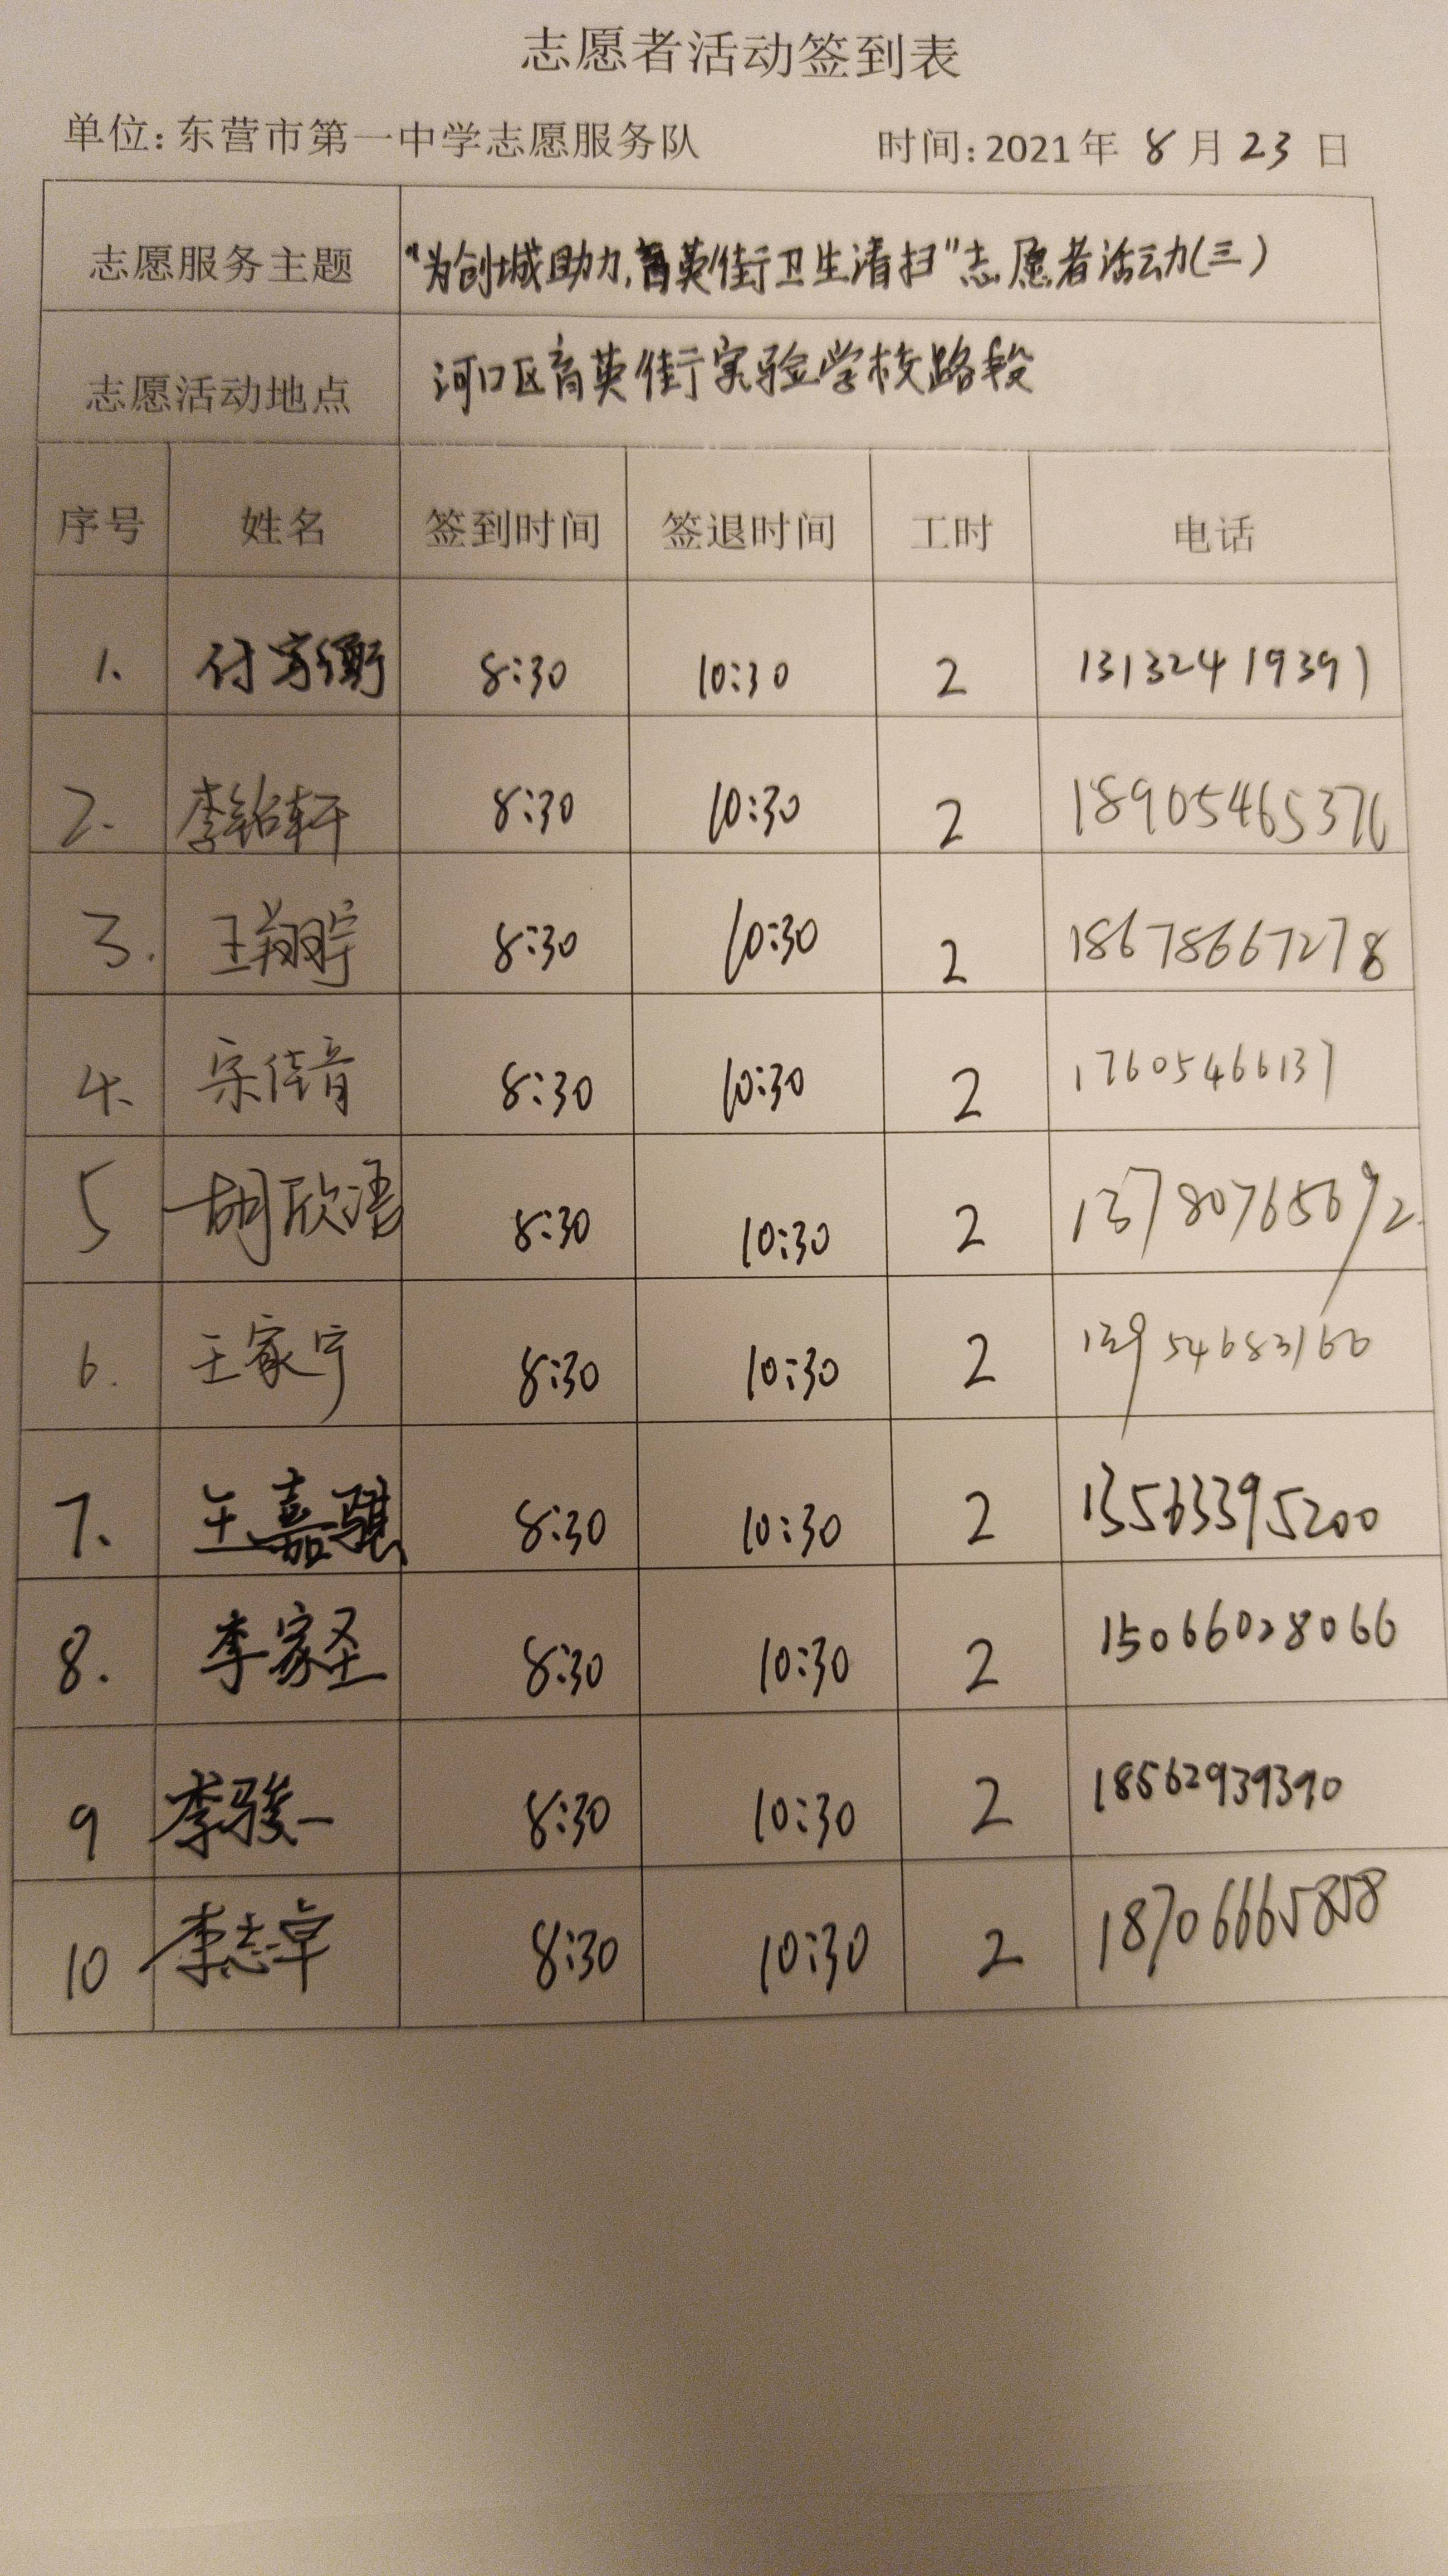 志愿者活动签到表
单位:东营市第一中学志愿服务队 时间:2021年 8 月 23 日
志愿服务主题 "为创城助力,育英街卫生清扫"志愿者活动(三)
志愿活动地点 河口区育英街实验学校路段
序号 姓名 签到时间 签退时间 工时 电话
1. 付 8:30 10:30 2 13132419391
2. 李铭轩 8:30 10:30 2 18905465376
3. 王翔宇 8:30 10:30 2 18678667278
4. 宋佳音 8:30 10:30 2 17605466137
5 胡欣语 8:30 10:30 2
6. 王家宁 8:30 10:30 2 13954683166
7. 王嘉骐 8:30 10:30 2 13563395200
8. 李家圣 8:30 10:30 2 15066028066
9 李骏一 8:30 10:30 2 18562939390
10 李志卓 8:30 10:30 2 18706665858